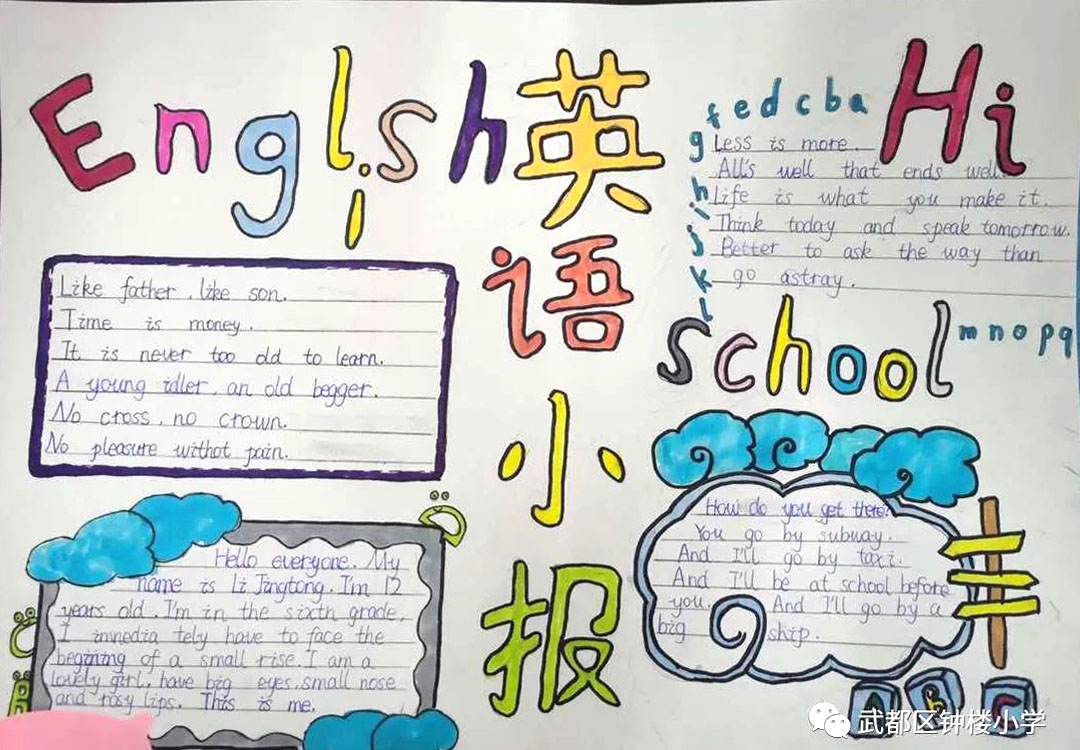 English
英
语
小
报
Hi
fedcba
ghijkl
Less is more.
All's well that ends well.
Life is what you make it.
Think today and speak tomorrow.
Better to ask the way than
go astray.
school
mnopq
Like father, like son.
Time is money.
It is never too old to learn.
A young idler, an old begger.
No cross, no crown.
No pleasure withot pain.
Hello everyone. My
name is Li Jingtong. I'm 12
years old. I'm in the sixth grade.
I imnedia tely have to face the
begining of a small rise. I am a
lovely girl, have big eyes, small nose
and rosy lips. This is me.
How do you get there?
You go by subway.
And I'll go by taxi.
And I'll be at school before
you. And I'll go by a
big ship.
A B C
武都区钟楼小学